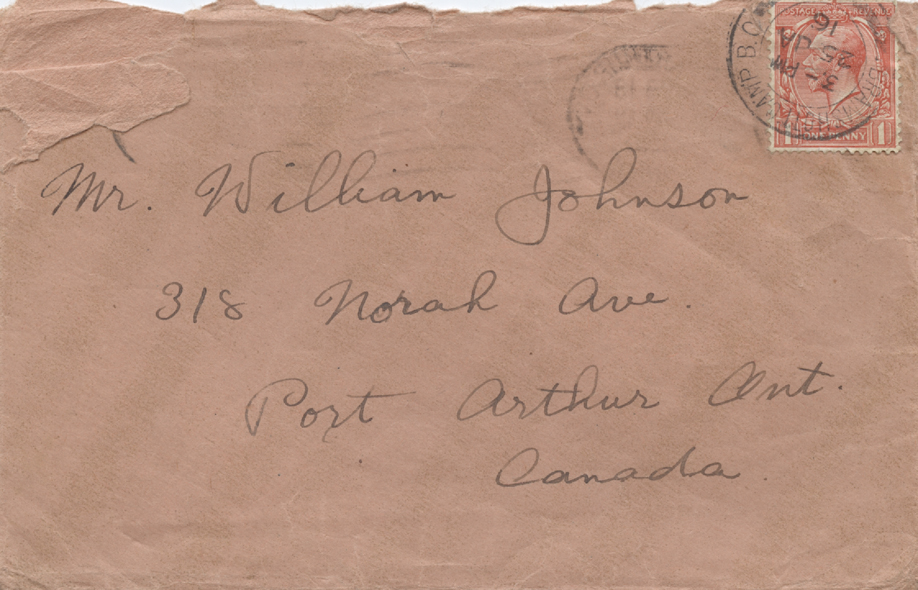 POSTAGE REVENUE
ONE PENNY
1 1
CAMP B.O.
Mr. William Johnson
318 Norah Ave.
Port Arthur Ont.
Canada